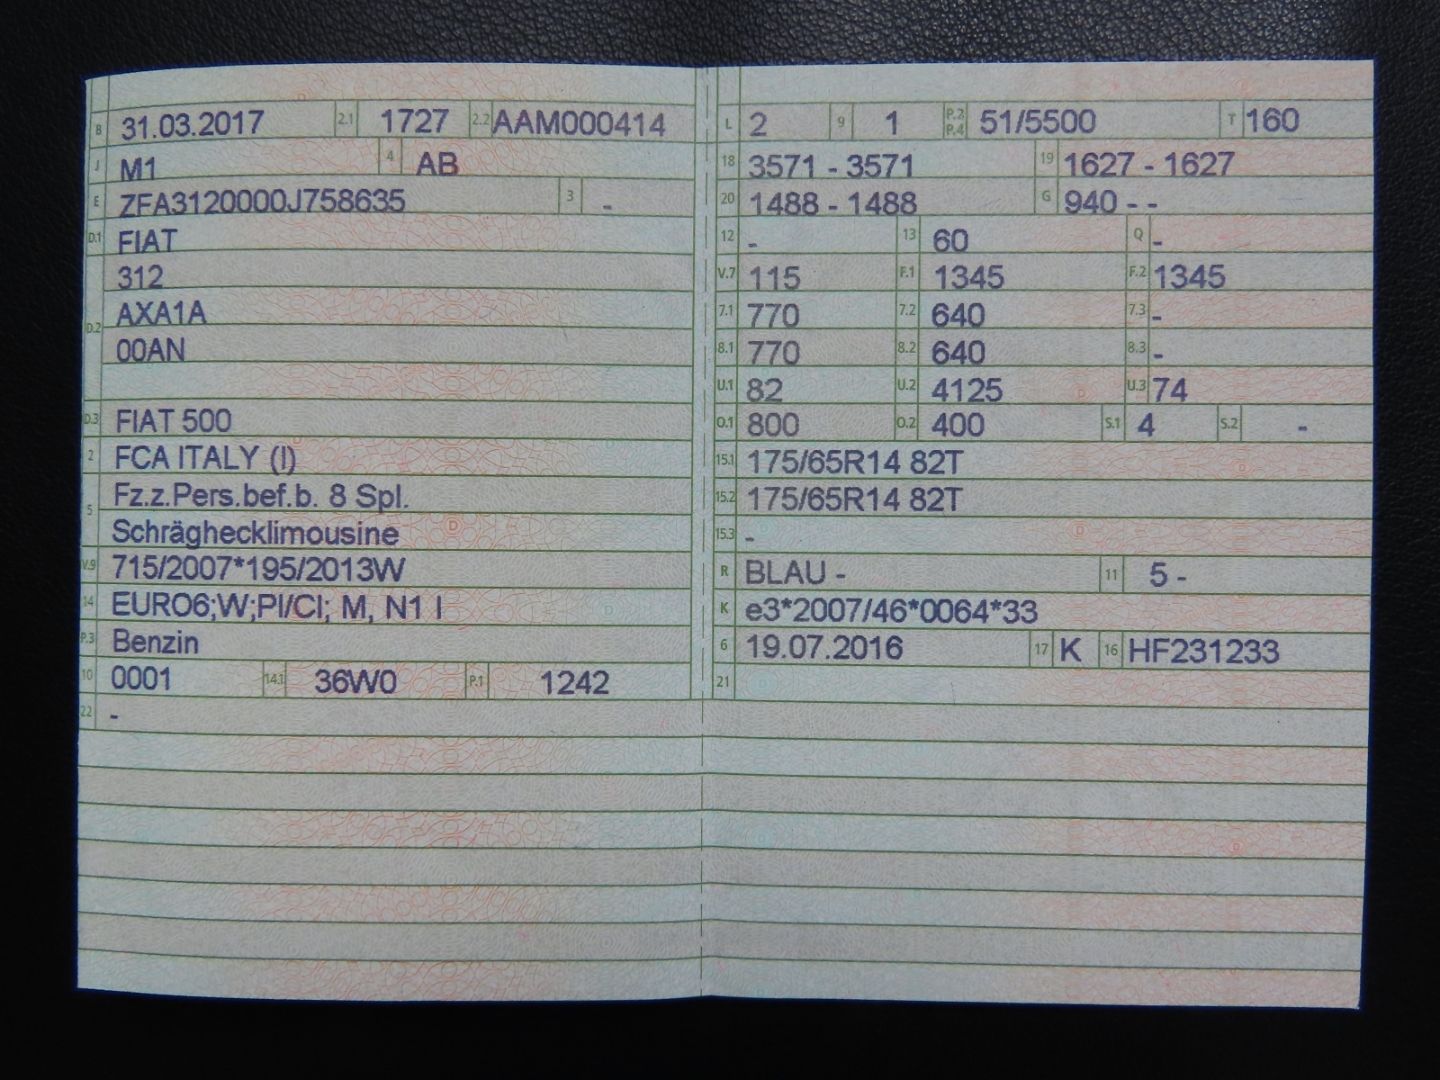 B 31.03.2017 2.1 1727 2.2 AAM000414
J M1 4 AB
E ZFA3120000J758635 3 -
D.1 FIAT
312
D.2 AXA1A
00AN
D.3 FIAT 500
2 FCA ITALY (I)
5 Fz.z.Pers.bef.b. 8 Spl.
Schräghecklimousine
V.9 715/2007*195/2013W
14 EURO6;W;PI/CI; M, N1 I
P.3 Benzin
10 0001 14.1 36W0 P.1 1242
22 -
L 2 9 1 P.2 P.4 51/5500 T 160
18 3571 - 3571 19 1627 - 1627
20 1488 - 1488 G 940 - -
12 - 13 60 Q -
V.7 115 F.1 1345 F.2 1345
7.1 770 7.2 640 7.3 -
8.1 770 8.2 640 8.3 -
U.1 82 U.2 4125 U.3 74
O.1 800 O.2 400 S.1 4 S.2 -
15.1 175/65R14 82T
15.2 175/65R14 82T
15.3 -
R BLAU - 11 5 -
K e3*2007/46*0064*33
6 19.07.2016 17 K 16 HF231233
21